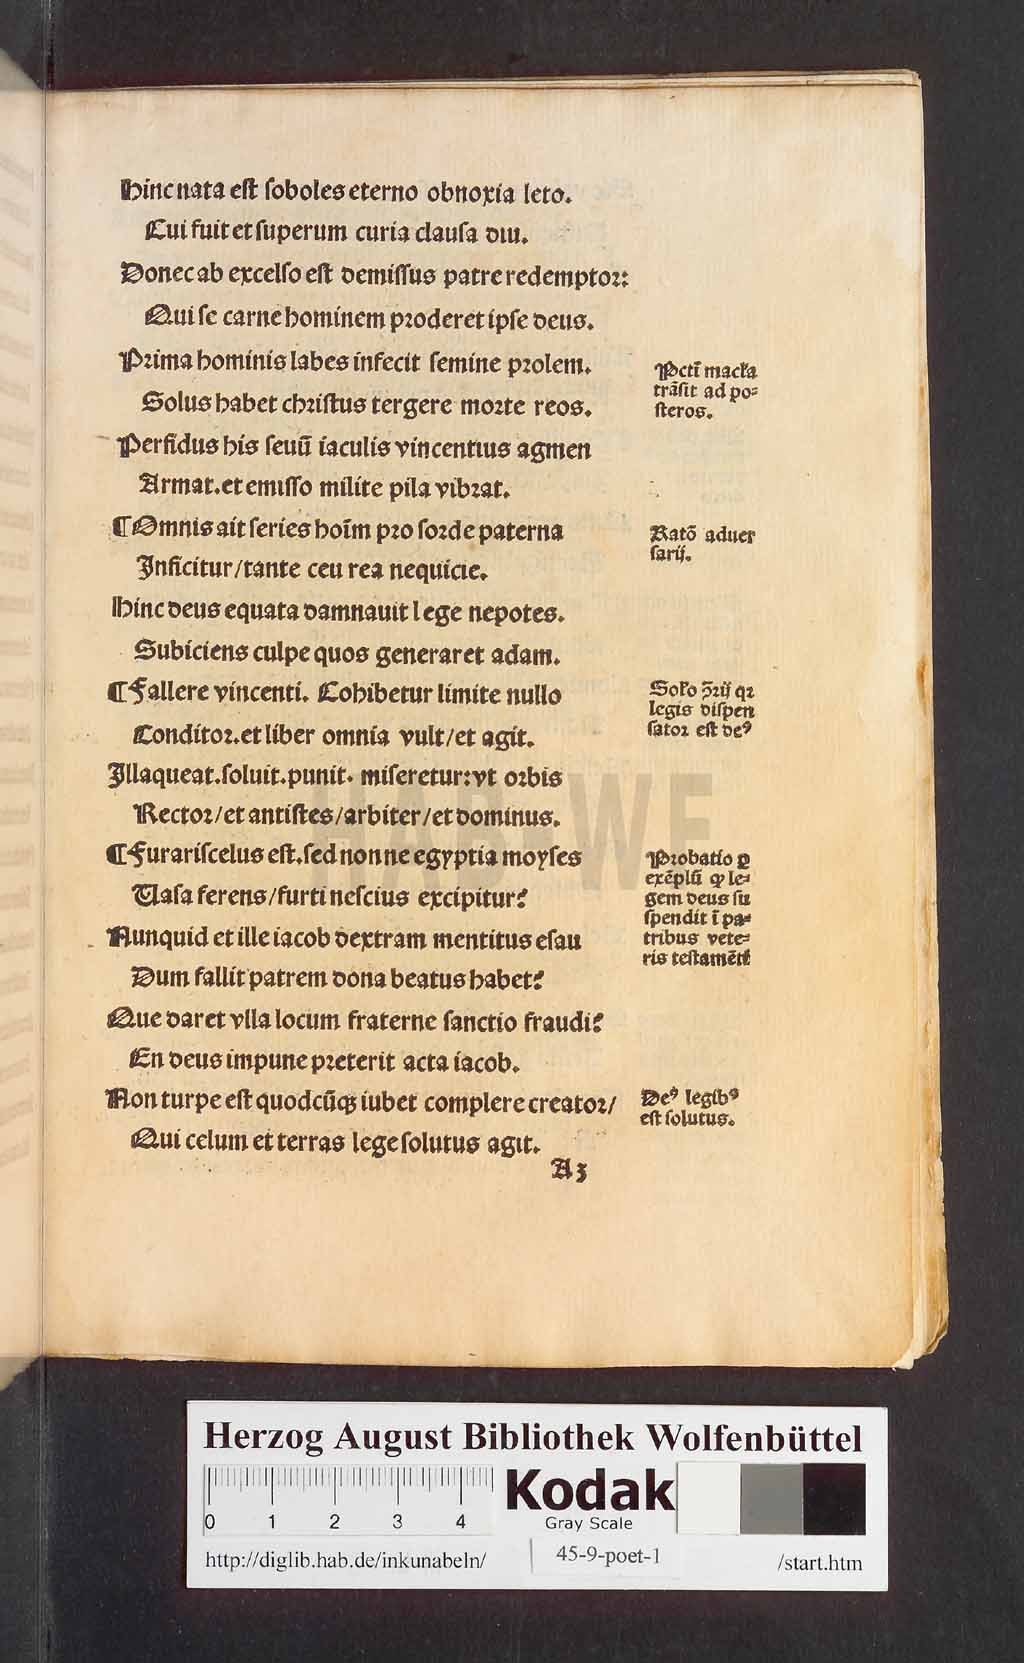 Hinc nata eſt ſoboles eterno obnoxia leto.
Cui fuit et ſuperum curia clauſa diu.
Donec ab excelſo eſt demiſſus patre redemptoꝛ:
Qui ſe carne hominem pꝛoderet ipſe deus.
Pꝛima hominis labes infecit ſemine pꝛolem.
Solus habet chꝛiſtus tergere moꝛte reos.
Perfidus his ſeuū iaculis vincentius agmen
Armat. et emiſſo milite pila vibꝛat.
¶ Omnis ait ſeries hoīm pꝛo ſoꝛde paterna
Inficitur/ tante ceu rea nequicie.
Hinc deus equata damnauit lege nepotes.
Subiciens culpe quos generaret adam.
¶ Fallere vincenti. Cohibetur limite nullo
Conditoꝛ. et liber omnia vult/ et agit.
Illaqueat. ſoluit. punit. miſeretur: vt oꝛbis
Rectoꝛ/ et antiſtes/ arbiter/ et dominus.
¶ Furari ſcelus eſt. ſed nonne egyptia moyſes
Uaſa ferens/ furti neſcius excipitur?
Nunquid et ille iacob dextram mentitus eſau
Dum fallit patrem dona beatus habet?
Que daret vlla locum fraterne ſanctio fraudi?
En deus impune pꝛeterit acta iacob.
Non turpe eſt quodcūqꝫ iubet complere creatoꝛ/
Qui celum et terras lege ſolutus agit.
A3
Pctī macĺa
trāſit ad po⸗
ſteros.
Ratō aduer
ſarij.
Solo ꝯ̄rij qꝛ
legis diſpen
ſatoꝛ eſt deꝰ
Pꝛobatio ꝑ
exēplū ꝙ le⸗
gem deus ſu
ſpendit ī pa⸗
tribus vete⸗
ris teſtamēti
Deꝰ legibꝰ
eſt ſolutus.
HAB WF
Herzog August Bibliothek Wolfenbüttel
0 1 2 3 4
Kodak
Gray Scale
http://diglib.hab.de/inkunabeln/
45-9-poet-1
/start.htm